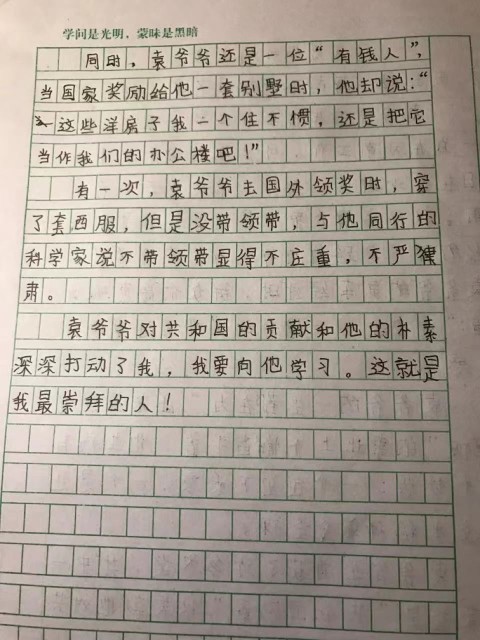 学问是光明，蒙昧是黑暗
同时，袁爷爷还是一位“有钱人”，
当国家奖励给他一套别墅时，他却说：“
这些洋房子我一个住不惯，还是把它
当作我们的办公楼吧！”
有一次，袁爷爷去国外领奖时，穿
了套西服，但是没带领带，与他同行的
科学家说不带领带显得不庄重，不严
肃。
袁爷爷对共和国的贡献和他的朴素
深深打动了我，我要向他学习。这就是
我最崇拜的人！